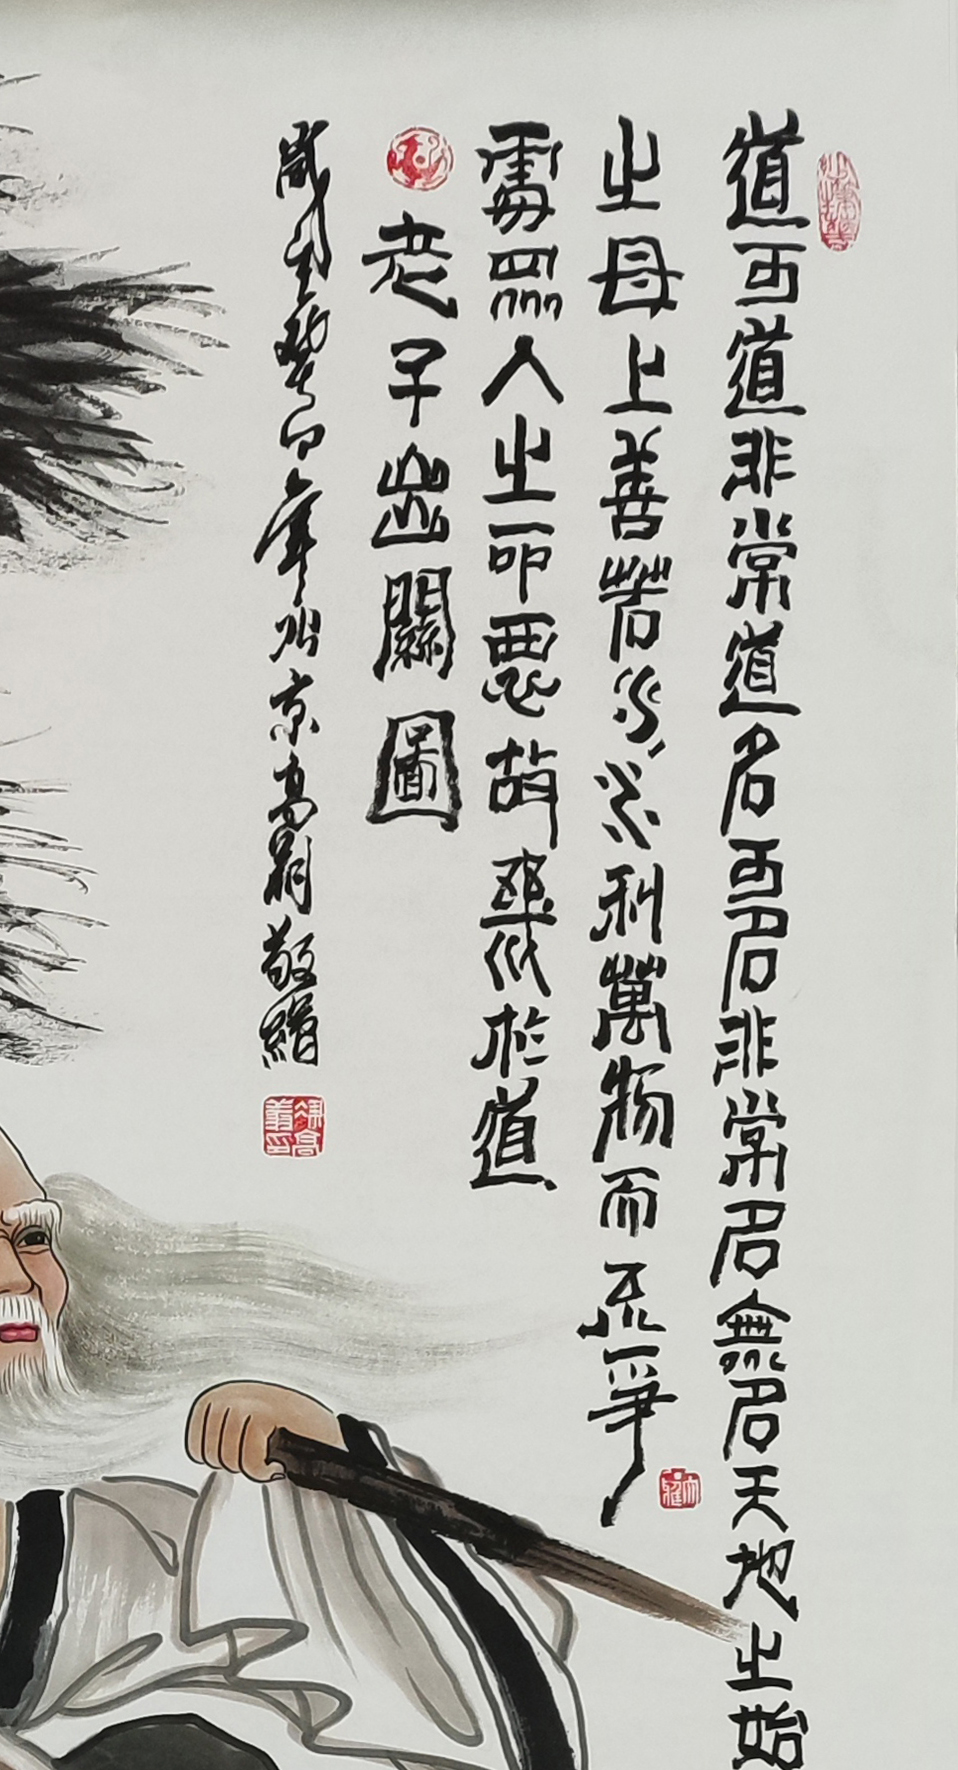 道可道非常道名可名非常名無名天地之始
之母上善若水水利萬物而不爭
處眾人之所惡故幾於道
老子出關圖
歲癸卯年於京高敬繪